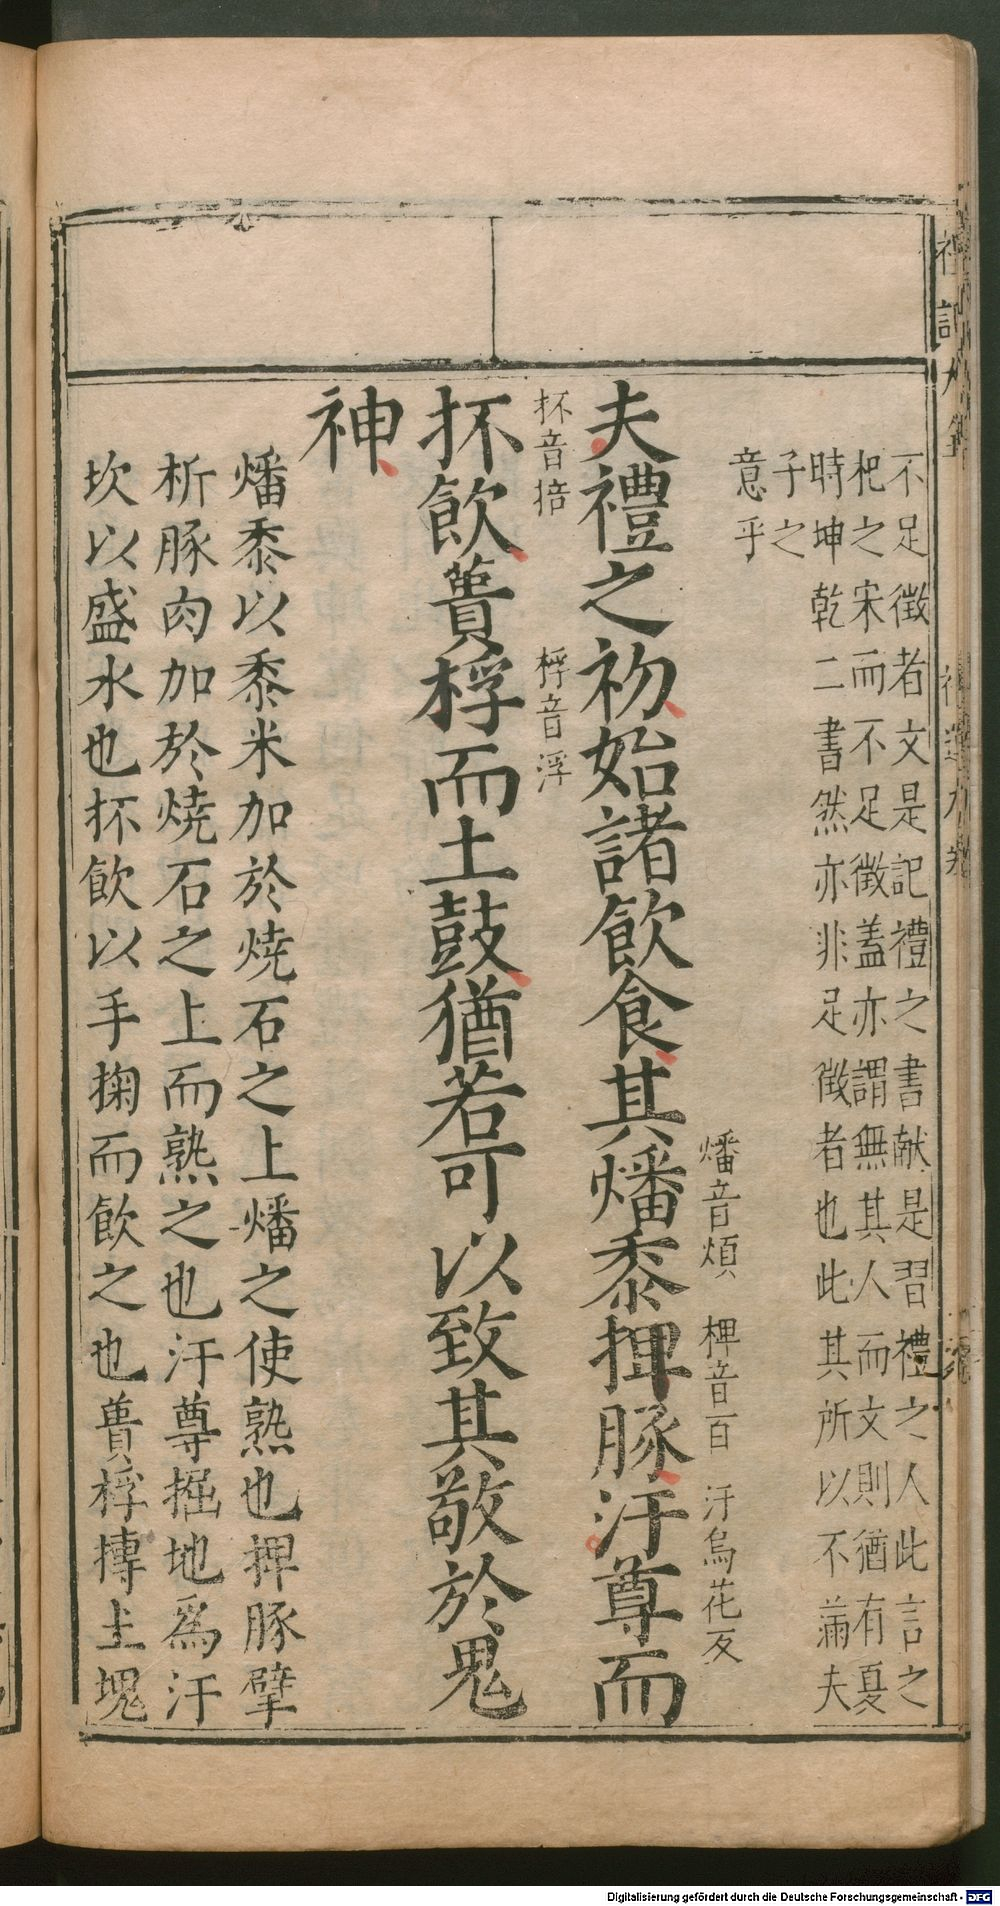 不足徴者文是記禮之書献是習禮之人此言之
杞之宋而不足徴蓋亦謂無其人而文則猶有夏
時坤乾二書然亦非足徴者也此其所以不滿夫
子之
意乎
燔音煩 椑音百 汙烏花反
夫禮之初始諸飲食其燔黍捭豚汙尊而
抔音掊 桴音浮
抔飲蕢桴而土鼓猶若可以致其敬於鬼
神
燔黍以黍米加於燒石之上燔之使熟也捭豚擘
析豚肉加於燒石之上而熟之也汙尊掘地爲汙
坎以盛水也抔飲以手掬而飲之也蕢桴摶土塊
Digitalisierung gefördert durch die Deutsche Forschungsgemeinschaft - DFG